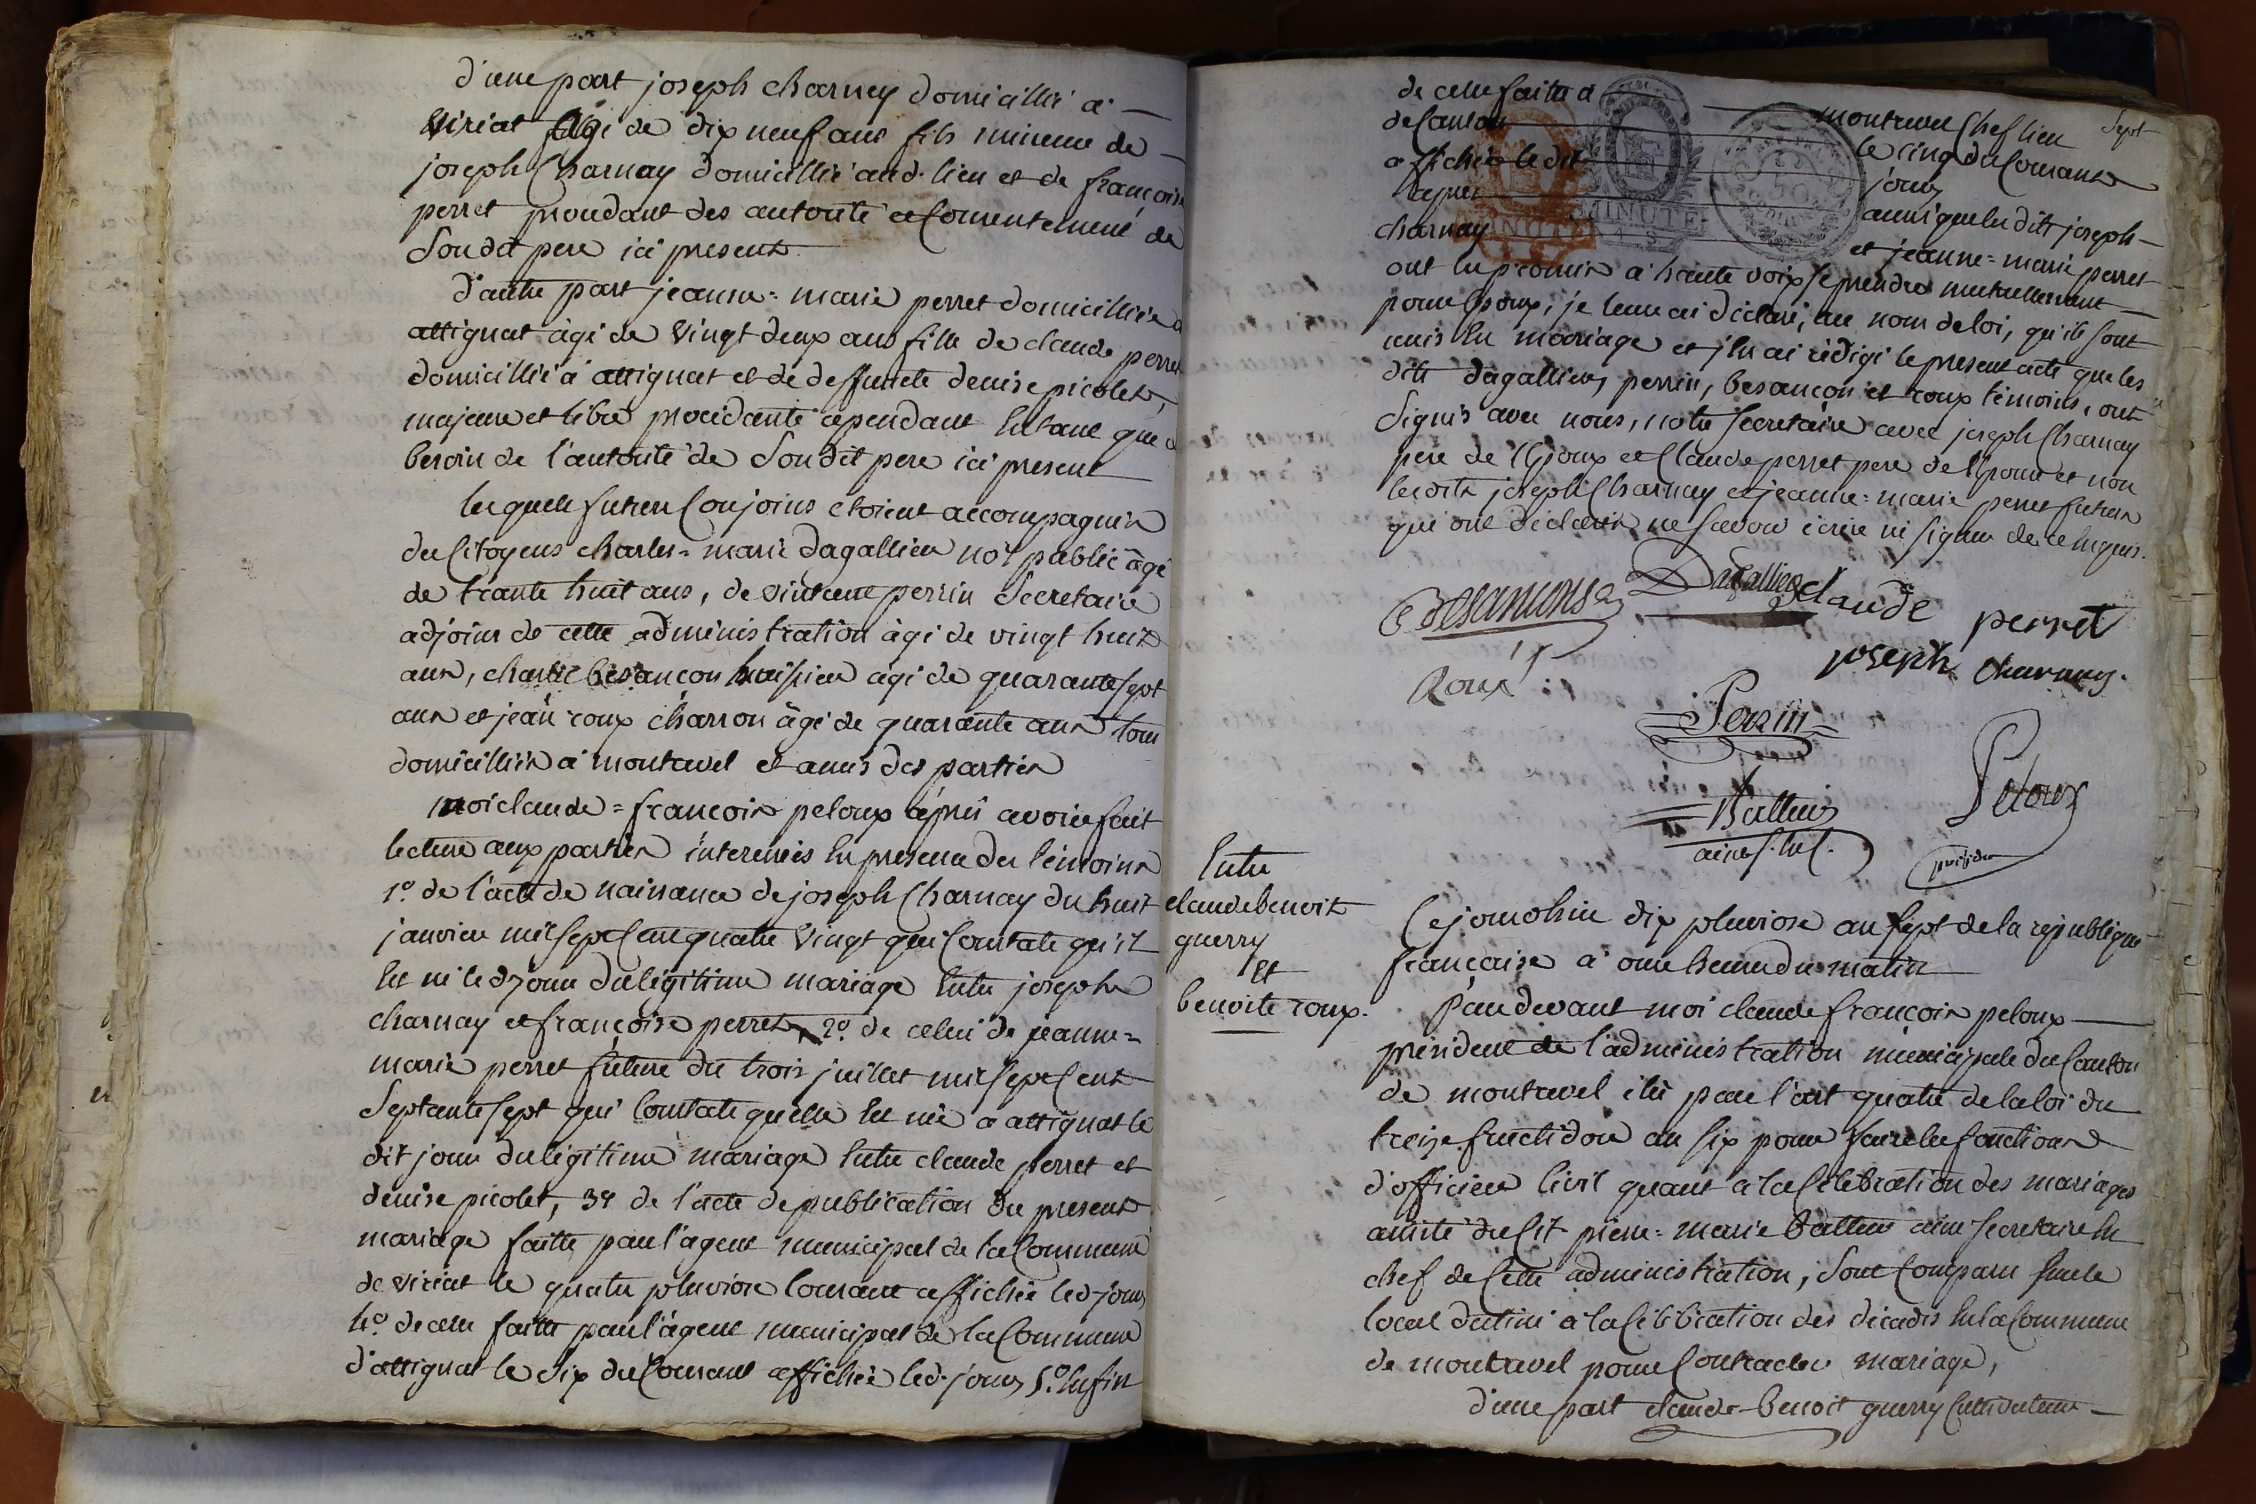 d'une part joseph charnay domicillié a
viriat âgé de dix neuf ans fils mineur de
joseph Charnay domicillié aud. lieu et de francoise
perret procedant des autorité et Consentement de
Son dit pere ici present
d'autre part jeanne = marie perret domicilliée a
attignat âgé de vingt deux ans fille de claude perret
domicillié à attignat et de deffuncte denise picolet,
majeure et libre procedante cependant entant que
besoin de l'autorité de Son dit pere ici present
lesquels futeurs Conjoins etoient accompagnés
des Citoyens charles = marie dagallier not public âgé
de trante huit ans, de vincent perrin Secretaire
adjoins de cette administration âgé de vingt huit
ans, charle besancon huissier agé de quarante sept
ans et jean roux charron âgé de quarante ans tous
domicilliés a montrevel et amis des parties
moi claude = francois peloux après avoir fait
lecture aux parties interessés en presence des témoins
1.° de l'acte de naissance de joseph Charnay du huit
janvier mil Sept Cent quatre vingt qui Constate qu'il
est né led jour du légitime mariage entre joseph
charnay et françoise perret, 2.° de celui de jeanne =
marie perret future du trois juillet mil Sept Cent
Septante Sept qui Constate quelle est née a attignat le
dit jour du légitime mariage entre claude perret et
denise picolet, 3° de l'acte de publication du present
mariage faitte par l'agent municipal de la Commune
de viriat le quatre pluviose Courant affichée led. jour
4.° de celle faitte par l'agent municipal de la Commune
d'attignat le dix du Courant affichée led. jour, 5.° enfin
de celle faitte a montrevel Chef lieu
Sept
de Canton le cinq du Courant
affichée le dit jour
après aussi que les dits joseph
charnay et jeanne = marie perret
ont eu promis à haute voix se prendre mutuellement
pour Epoux, je leur ai déclaré, au nom de loi, qu'ils sont
unis en mariage et j'en ai rédigé le present acte que les
dits dagallier, perrin, besancon et roux témoins, ont
Signés avec nous, notre Secretaire avec joseph Charnay
pere de l'Epoux et Claude perret pere de l'Epouse et non
lesdits joseph Charnay et jeanne = marie perret futurs
qui ont déclarés ne savoir écrire ni signer de ce enquis.
Besancons
Dagallier
claude perret
Roux
joseph charnay.
Perrin
Peloux
Battieur
ainé
président
Entre
claude benoit
guerry
Et
benoite roux.
Ce jourdhui dix pluviose an sept de la république
française à onze heure du matin
Pardevant moi claude françois peloux
président de l'administration municipale du Canton
de montrevel élu par l'art quatre de la loi du
treize fructidor an six pour faire les fonctions
d'officier Civil quant à la Célébration des mariages
assisté du Cit pierre = marie ainé Secretaire en
chef de Cette administration, Sont Comparu sur le
local destiné à la Célébration des décadis en la Commune
de montrevel pour Contracter mariage,
d'une part claude - benoit guerry Cultivateur